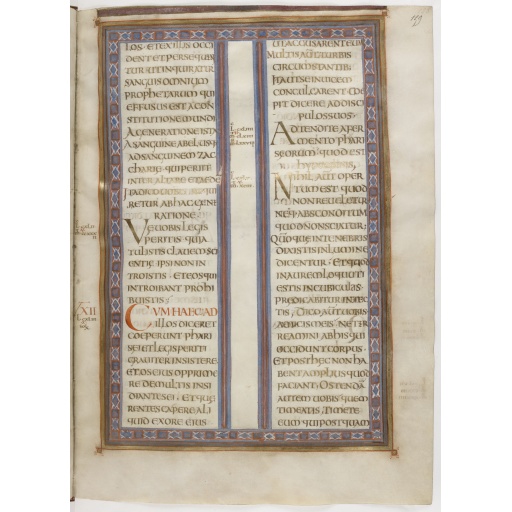 LOS·ETEXILLIS OCCI
DENTETPERSEQUEN
TUR UTINQUIRATUR
SANGUIS OMNIUM
PROPHETARUM QUI
EFFUSUS EST A CON
STITUTIONE MUNDI
A GENERATIONE ISTA
A SANGUINE ABEL USQ·
AD SANGUINEM ZAC
CHARIAE QUI PERIIT
INTER ALTARE ET AEDE
ITA DICO
RETUR AB HAC GENE
RATIONE
VAE UOBIS LEGIS
PERITIS QUIA
TULISTIS CLAUEM SCI
ENTIAE IPSI NON IN
TROISTIS· ET EOS QUI
INTROIBANT PROHI
BUISTIS
CUM HAEC AD
ILLOS DICERET
COEPERUNT PHARI
SEI ET LEGIS PERITI
GRAUITER INSISTERE
ET OS EIUS OPPRIME
RE DE MULTIS INSI
DIANTES EI· ET QUAE
RENTES CAPERE ALI
QUID EX ORE EIUS
UT ACCUSARENT EUM
MULTIS AUTEM TURBIS
CIRCUMSTANTIB·
ITA UT SE INUICEM
CONCULCARENT COE
PIT DICERE AD DISCI
PULOS SUOS·
ADTENDITE A FER
MENTO PHARI
SEORUM· QUOD EST
HYPOCRISIS·
NIHIL AUT OPER
TUM EST· QUOD
NON REUELETUR
NEQ· ABSCONDITUM
QUOD NON SCIATUR·
QUO QUAE IN TENEBRIS
DIXISTIS IN LUMINE
DICENTUR· ET QUOD
IN AUREM LOQUUTI
ESTIS IN CUBICULIS·
PREDICABITUR IN TEC
TIS· DICO AUT UOBIS
AMICIS MEIS· NE TER
REAMINI AB HIS QUI
OCCIDUNT CORPUS·
ET POST HEC NON HA
BENT AMPLIUS QUOD
FACIANT· OSTENDA
AUTEM UOBIS QUEM
TIMEATIS· TIMETE
EUM QUI POSTQUAM
XII